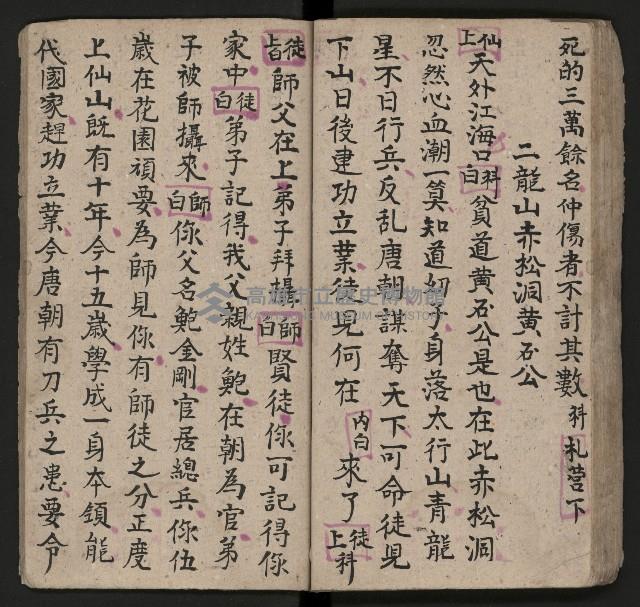 死的三萬餘名仲傷者不計其數科札营下
二龍山赤松洞黄石公
仙上天外江海口科白貧道黄石公是也在此赤松洞
忍然心血潮一算知道幼子身落太行山青龍
星不日行兵反乱唐朝謀奪天下可命徒児
下山日後建功立業徒児何在内白來了徒上科
徒旨師父在上弟子拜攝師白賢徒你可記得你
家中徒白弟子記得我父親姓鮑在朝為官弟
子被師攝來師白你父名鮑金剛官居總兵你伍
歲在花園頑要為師見你有師徒之分正度
上仙山既有十年今十五歲學成一身本領能
代國家趕功立業今唐朝有刀兵之患要令
高雄市立歷史博物館
KAOHSIUNG MUSEUM OF HISTORY